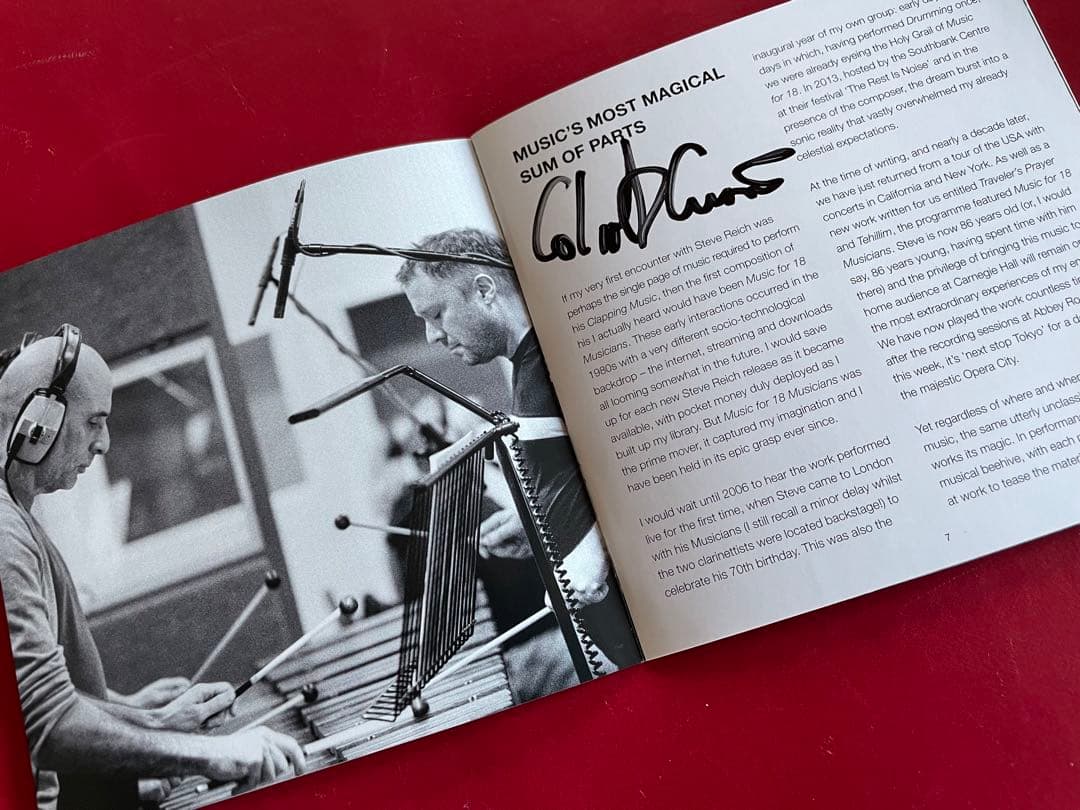 MUSIC'S MOST MAGICAL
SUM OF PARTS
If my very first encounter with Steve Reich was
perhaps the single page of music required to perform
his Clapping Music, then the first composition of
his I actually heard would have been Music for 18
Musicians. These early interactions occurred in the
1980s with a very different socio-technological
backdrop – the internet, streaming and downloads
all looming somewhat in the future. I would save
up for each new Steve Reich release as it became
available, with pocket money duly deployed as I
built up my library. But Music for 18 Musicians was
the prime mover, it captured my imagination and I
have been held in its epic grasp ever since.
I would wait until 2006 to hear the work performed
live for the first time, when Steve came to London
with his Musicians (I still recall a minor delay whilst
the two clarinettists were located backstage!) to
celebrate his 70th birthday. This was also the
inaugural year of my own group: early
days in which, having performed Drumming once,
we were already eyeing the Holy Grail of Music
for 18. In 2013, hosted by the Southbank Centre
at their festival 'The Rest Is Noise' and in the
presence of the composer, the dream burst into a
sonic reality that vastly overwhelmed my already
celestial expectations.
At the time of writing, and nearly a decade later,
we have just returned from a tour of the USA with
concerts in California and New York. As well as a
new work written for us entitled Traveler's Prayer
and Tehillim, the programme featured Music for 18
Musicians. Steve is now 86 years old (or, I would
say, 86 years young, having spent time with him
there) and the privilege of bringing this music to
home audience at Carnegie Hall will remain
the most extraordinary experiences of my
We have now played the work countless
after the recording sessions at Abbey
this week, it's 'next stop Tokyo' for a
the majestic Opera City.
Yet regardless of where and
music, the same utterly
works its magic. In
musical beehive, with each
at work to tease the
7